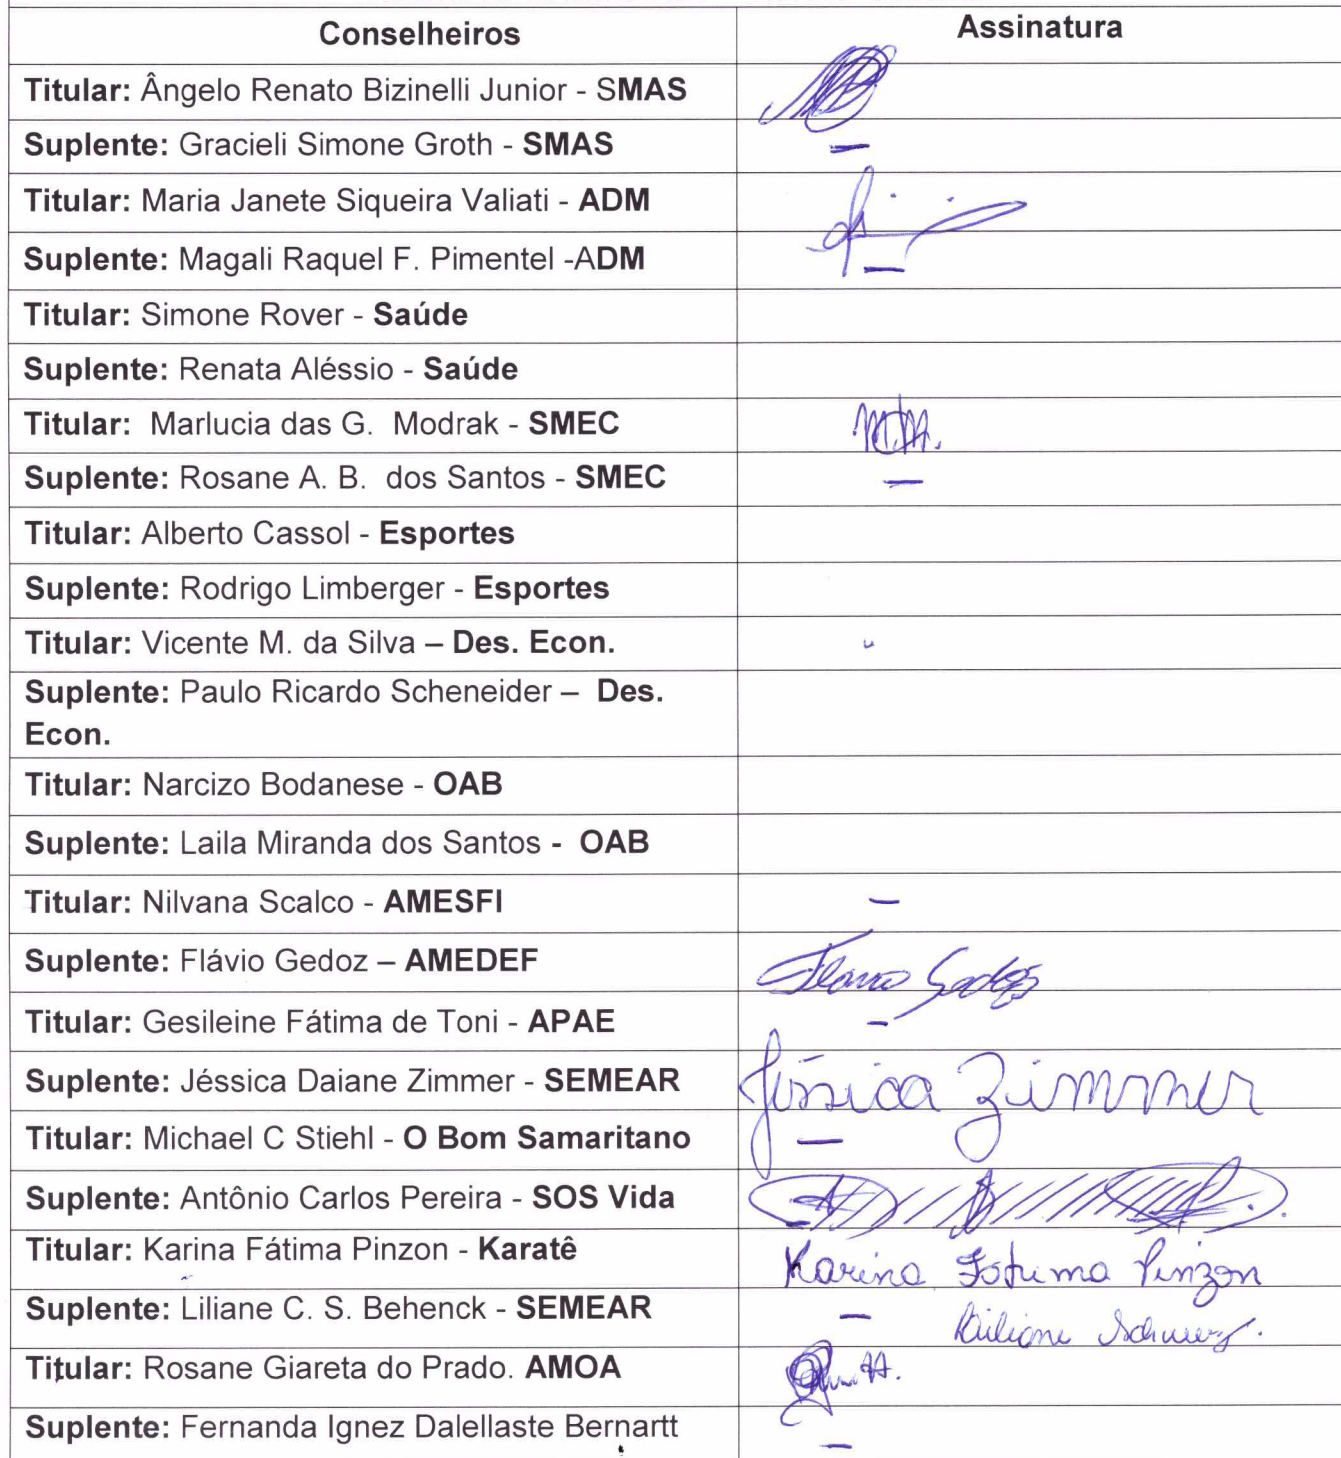 Conselheiros Assinatura
Titular: Ângelo Renato Bizinelli Junior - SMAS
Suplente: Gracieli Simone Groth - SMAS —
Titular: Maria Janete Siqueira Valiati - ADM
Suplente: Magali Raquel F. Pimentel -ADM —
Titular: Simone Rover - Saúde
Suplente: Renata Aléssio - Saúde
Titular: Marlucia das G. Modrak - SMEC
Suplente: Rosane A. B. dos Santos - SMEC —
Titular: Alberto Cassol - Esportes
Suplente: Rodrigo Limberger - Esportes
Titular: Vicente M. da Silva – Des. Econ.
Suplente: Paulo Ricardo Scheneider – Des.
Econ.
Titular: Narcizo Bodanese - OAB
Suplente: Laila Miranda dos Santos - OAB
Titular: Nilvana Scalco - AMESFI —
Suplente: Flávio Gedoz – AMEDEF Flavio Gedoz
Titular: Gesileine Fátima de Toni - APAE —
Suplente: Jéssica Daiane Zimmer - SEMEAR Jéssica Zimmer
Titular: Michael C Stiehl - O Bom Samaritano —
Suplente: Antônio Carlos Pereira - SOS Vida
Titular: Karina Fátima Pinzon - Karatê Karina Fatima Pinzon
Suplente: Liliane C. S. Behenck - SEMEAR — Liliane
Titular: Rosane Giareta do Prado. AMOA
Suplente: Fernanda Ignez Dalellaste Bernartt —